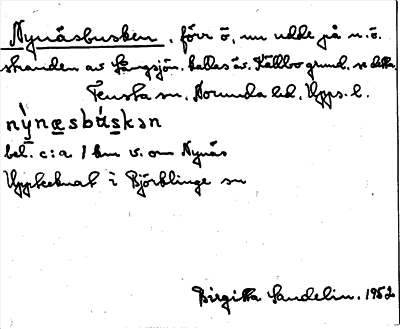 Nynäsbusken, förr ö, nu udde på n.ö.
stranden av Långsjön. kallas äv. Källbo grund, se detta.
Tensta sn, Norunda hd, Upps. l.
nỳnæsbùskən
bel. c:a 1 km v. om Nynäs
Upptecknat i Björklinge sn
Birgitta Sandelin. 1952